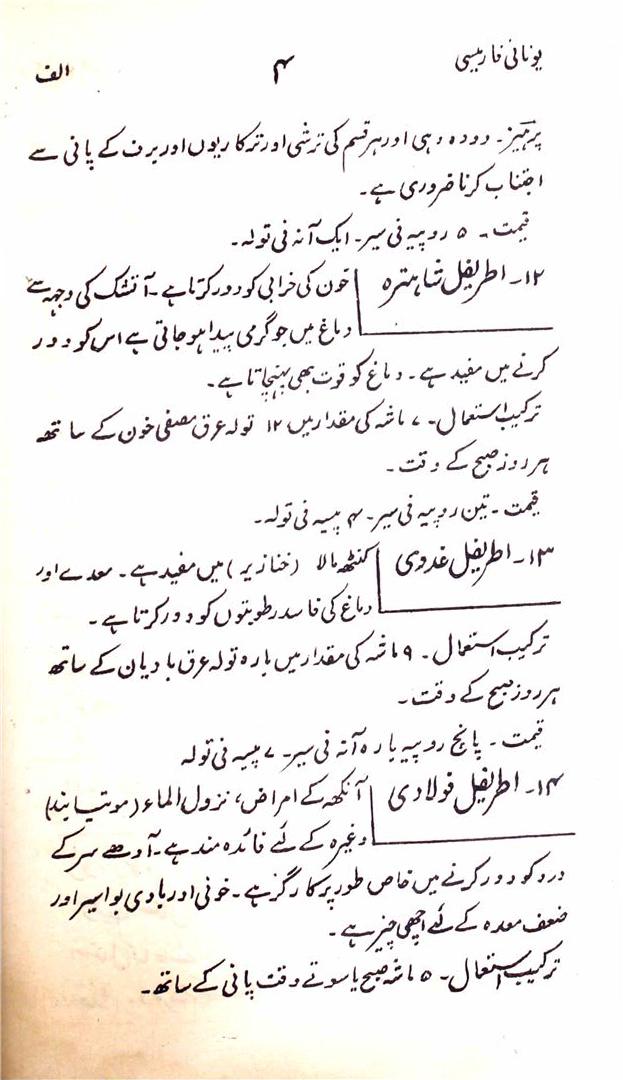 یونانی فارمیسی ۴ الف
پرہیز۔ دودھ دہی اور ہر قسم کی ترشی اور ترکاریوں اور برف کے پانی سے
اجتناب کرنا ضروری ہے۔
قیمت۔ ۵ روپیہ فی سیر۔ ایک آنہ فی تولہ۔
۱۲۔ اطریفل شاہترہ خون کی خرابی کو دور کرتا ہے۔ آتشک کی وجہہ سے
دماغ میں جو گرمی پیدا ہو جاتی ہے اس کو دور
کرنے میں مفید ہے۔ دماغ کو قوت بھی پہنچاتا ہے۔
ترکیب استعمال۔ ۷ ماشہ کی مقدار میں ۱۲ تولہ عرق مصفی خون کے ساتھ
ہر روز صبح کے وقت۔
قیمت۔ تین روپیہ فی سیر۔ ۴ پیسہ فی تولہ۔
۱۳۔ اطریفل غدوی کنٹھ مالا (خنازیر) میں مفید ہے۔ معدے اور
دماغ کی فاسد رطوبتوں کو دور کرتا ہے۔
ترکیب استعمال۔ ۹ ماشہ کی مقدار میں بارہ تولہ عرق بادیان کے ساتھ
ہر روز صبح کے وقت۔
قیمت۔ پانچ روپیہ بارہ آنہ فی سیر۔ ۷ پیسہ فی تولہ
۱۴۔ اطریفل فولادی آنکھ کے امراض، نزول الماء (موتیا بند)
وغیرہ کے لئے فائدہ مند ہے۔ آدھے سر کے
درد کو دور کرنے میں خاص طور پر کارگر ہے۔ خونی اور بادی بواسیر اور
ضعف معدہ کے لئے اچھی چیز ہے۔
ترکیب استعمال۔ ۵ ماشہ صبح یا سوتے وقت پانی کے ساتھ۔